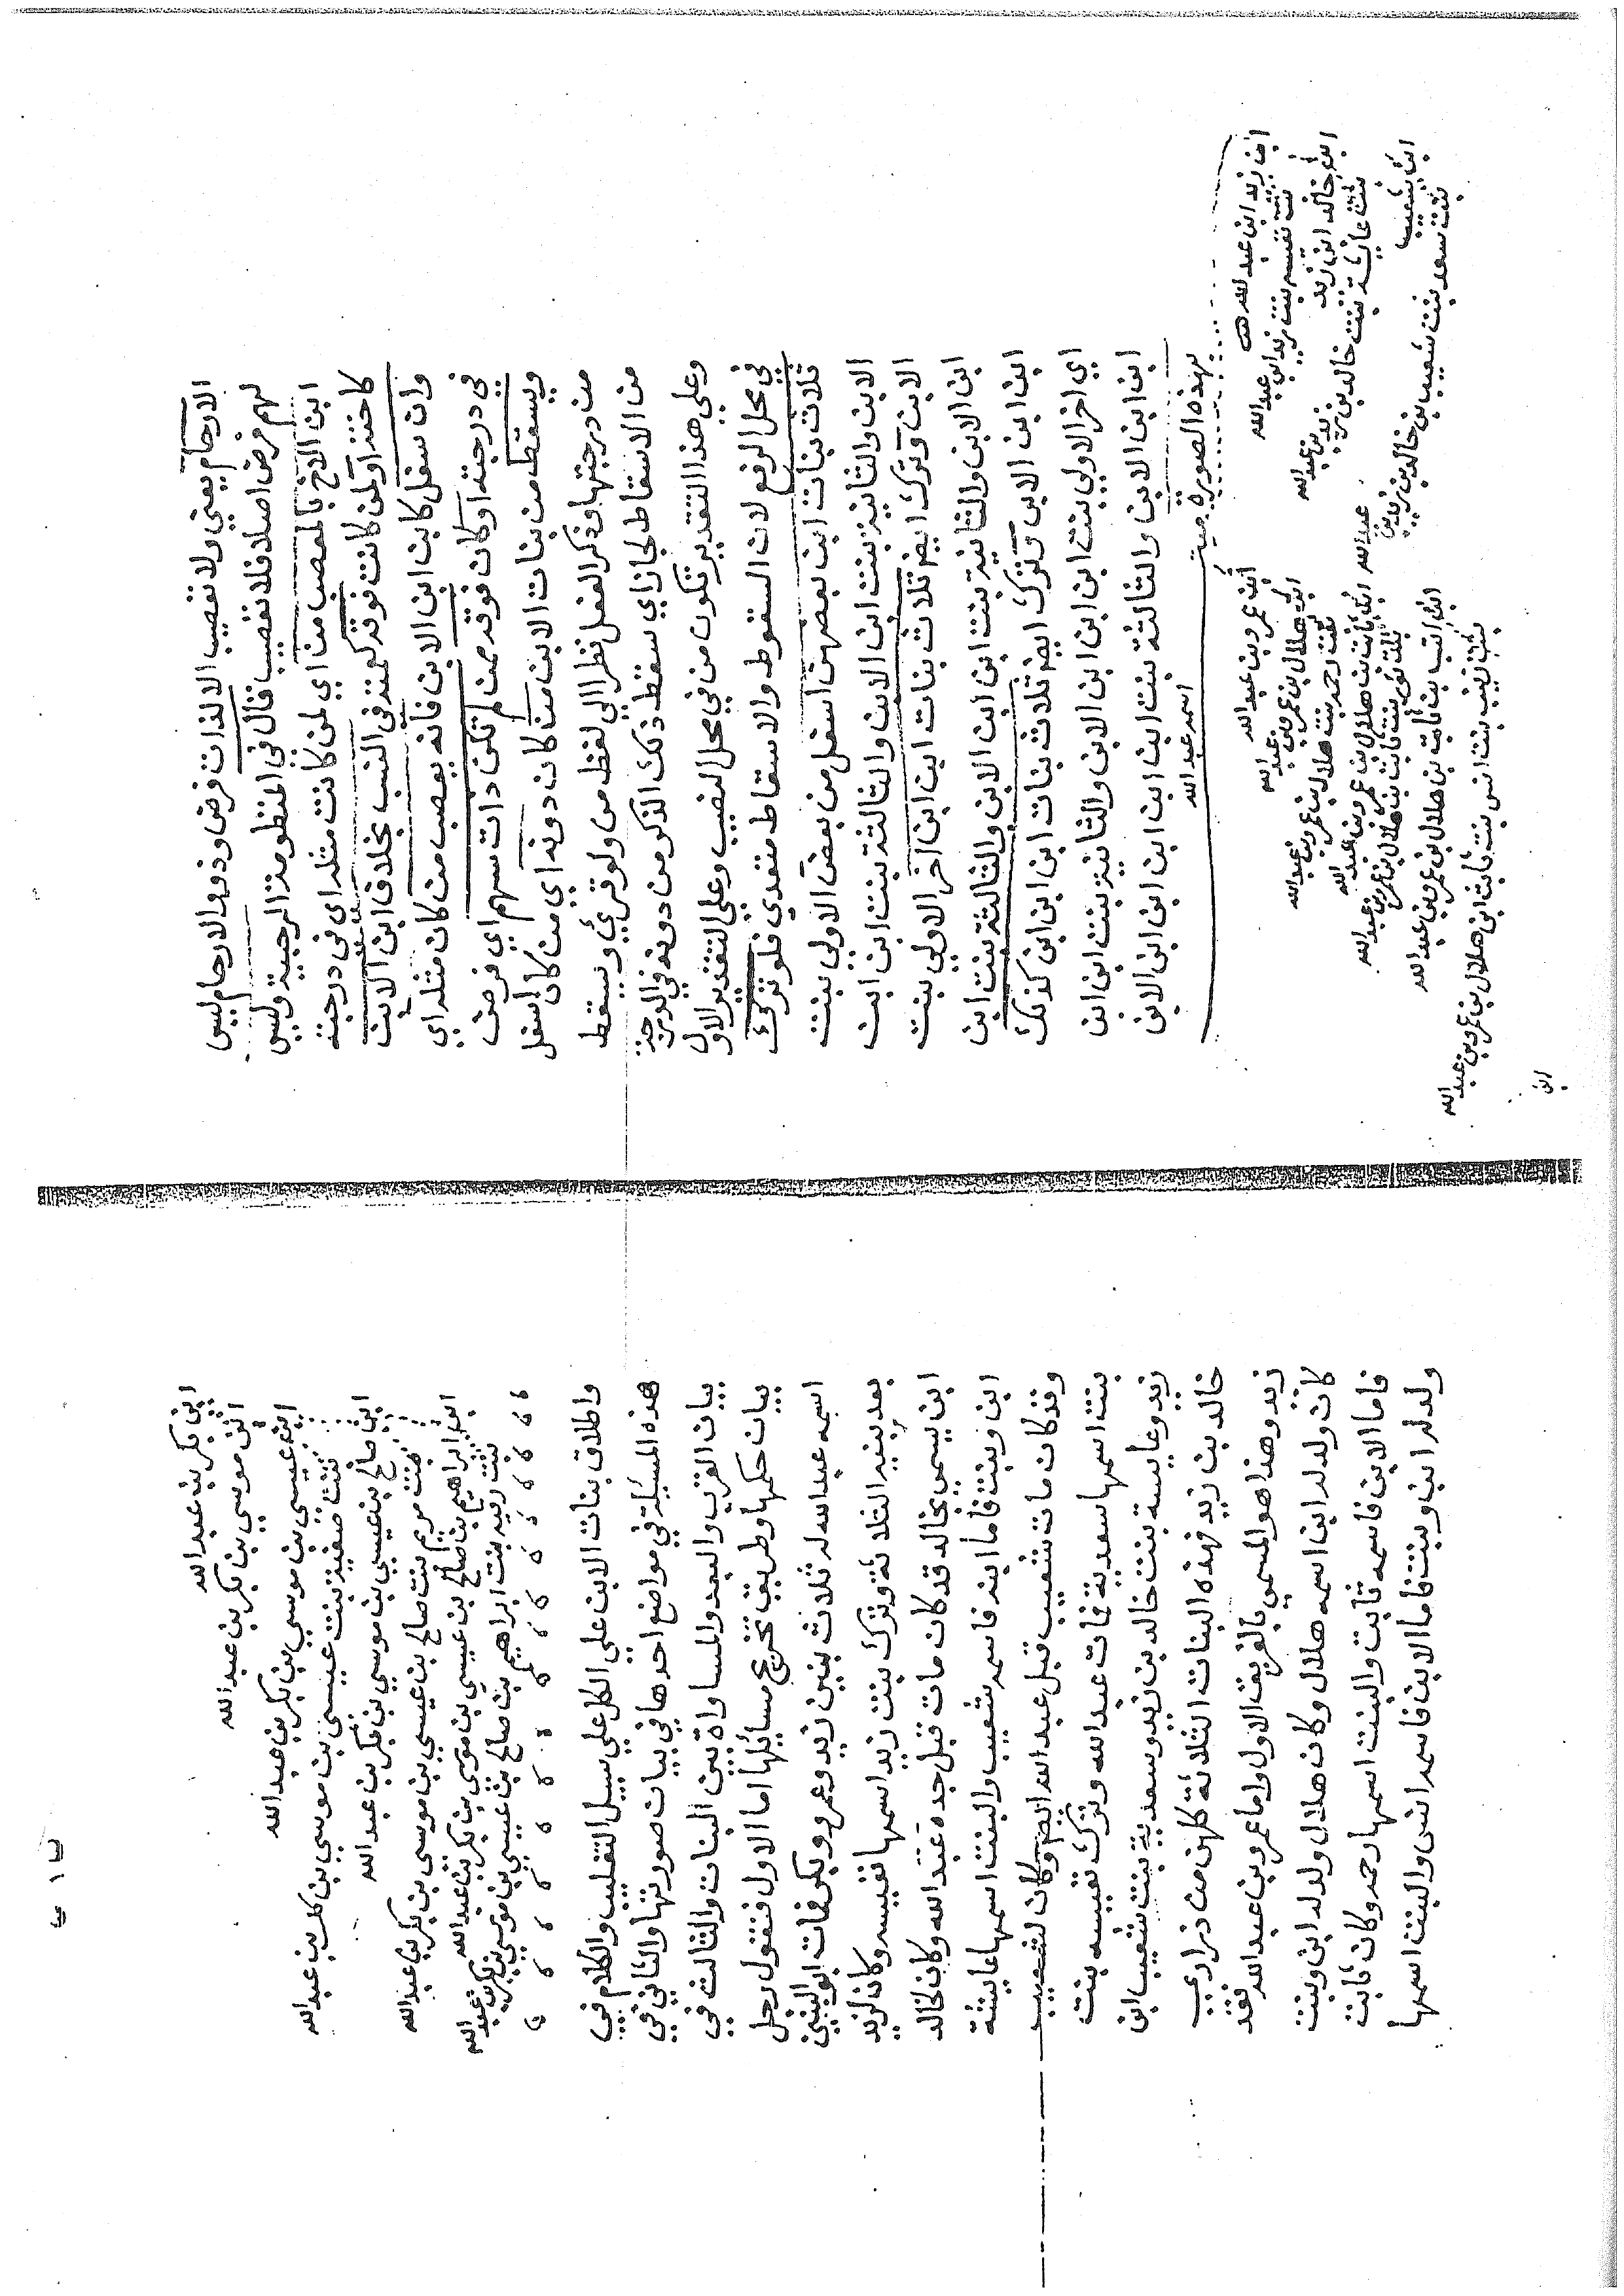 الارحام يعني ولا تعصيب الا لذات فرض وذووالارحام ليس
لهم فرض اصلا فلا تعصيب قال في المنظومة الرحبية وليس
ابن الاخ بالمعصب من اي لمن كانت مثله اي في درجته
كاخته اولمن كانت فوقه كعمته في النسب بخلاف ابن الابن
وان سفل كابن ابن الابن فانه يعصب من كان مثله اي
في درجته اوكان فوقه ممن لم تكن ذات سهم اي فرض
ويسقط من بنات الابن من كان دونه اي من كان اسفل
من درجتها وذكر الفعل نظرا الي لفظ من ولو قرئ ويسقط
من الاسقاط لجاز اي سقط ذلك الذكر من دونه في الدرجة
وعلي هذا التقدير تكون من في محل النصب وعلي التقدير الاول
في محل الرفع لان السقوط والاسقاط متعدي فلو ترك
ثلاث بنات ابن بعضهن اسفل من بعض الاولي بنت
الابن والثانية بنت ابن الابن والثالثة بنت ابن ابن
الابن وترك ايضا ثلاث بنات ابن ابن اخر الاولي بنت
ابن الابن والثانية بنت ابن ابن الابن والثالثة بنت ابن
ابن ابن الابن وترك ايضا ثلاث بنات ابن ابن ابن كذلك
اي اخر الاولي بنت ابن ابن الابن والثانية بنت ابن ابن
ابن الابن والثالثة بنت ابن ابن ابن ابن الابن
بهذه الصورة ميت اسمه عبد الله
ابن زيد ابن عبد الله
بنت نفيسه بنت زيد ابن عبد الله
ابن خالد ابن زيد بن عبد الله
بنت عايشة بنت خالد بن زيد بن عبد الله
ابن شعيب بن خالد بن زيد بن عبد الله
بنت سعديه بنت شعيب بن خالد بن زيد
ابن عمرو بن عبد الله
ابن هلال بن عمرو بن عبد الله
بنت رحمه بنت هلال بن عمرو بن عبد الله
ابن ثابت بن هلال بن عمرو بن عبد الله
بنت ثابت بن هلال بن عمرو بن عبد الله
ابن انس بن ثابت بن هلال بن عمرو بن عبد الله
بنت زينب بنت انس بن ثابت ابن هلال بن عمرو بن عبد الله
ابن
ابن بكر بن عبد الله
ابن موسي بن بكر بن عبد الله
ابن عيسي بن موسي بن بكر بن عبد الله
بنت صفية بنت عيسي بن موسي بن بكر بن عبد الله
ابن صالح بن عيسي بن موسي بن بكر بن عبد الله
بنت مريم بنت صالح بن عيسي بن موسي بن بكر بن عبد الله
ابن ابراهيم بن صالح بن عيسي بن موسي بن بكر بن عبد الله
بنت بنت ابراهيم بن صالح بن عيسي بن موسي بن بكر بن عبد الله
واطلاق بنات الابن علي الكل علي سبيل التغليب والكلام في
هذه المسيلة في مواضع احدها في بيان صورتها والثاني في
بيان القرب والبعد والمساواة بين البنات والثالث في
بيان حكمها وطريق تخريج مسايلها اما الاول فنقول رجل
اسمه عبد الله له ثلاث بنين زيد وعمرو وبكر فمات ابو البنين
بعد بنيه الثلاثة وترك بنت زيد اسمها نفيسه وكان لزيد
ابن يسمي بخالد قد كان مات قبل جده عبد الله وكان لخالد
ابن وبنت فاما ابنه فاسمه شعيب والبنت اسمها عايشة
وقد كان مات شعيب قبل عبد الله ايضا وكان لشعيب
بنت اسمها سعدية فمات عبد الله وترك نفيسه بنت
زيد وعايشة بنت خالد بن زيد وسعدية بنت شعيب ابن
خالد بن زيد فهذه البنات الثلاثة كلهن من ذراري
زيد وهذا هو المسمي بالفريق الاول واما عمرو بن عبد الله فقد
كان ولد له ابن اسمه هلال وكان هلال ولد له ابن وبنت
فاما الابن فاسمه ثابت والبنت اسمها رحمه وكان ثابت
ولد له ابن وبنت فاما الابن فاسمه انس والبنت اسمها